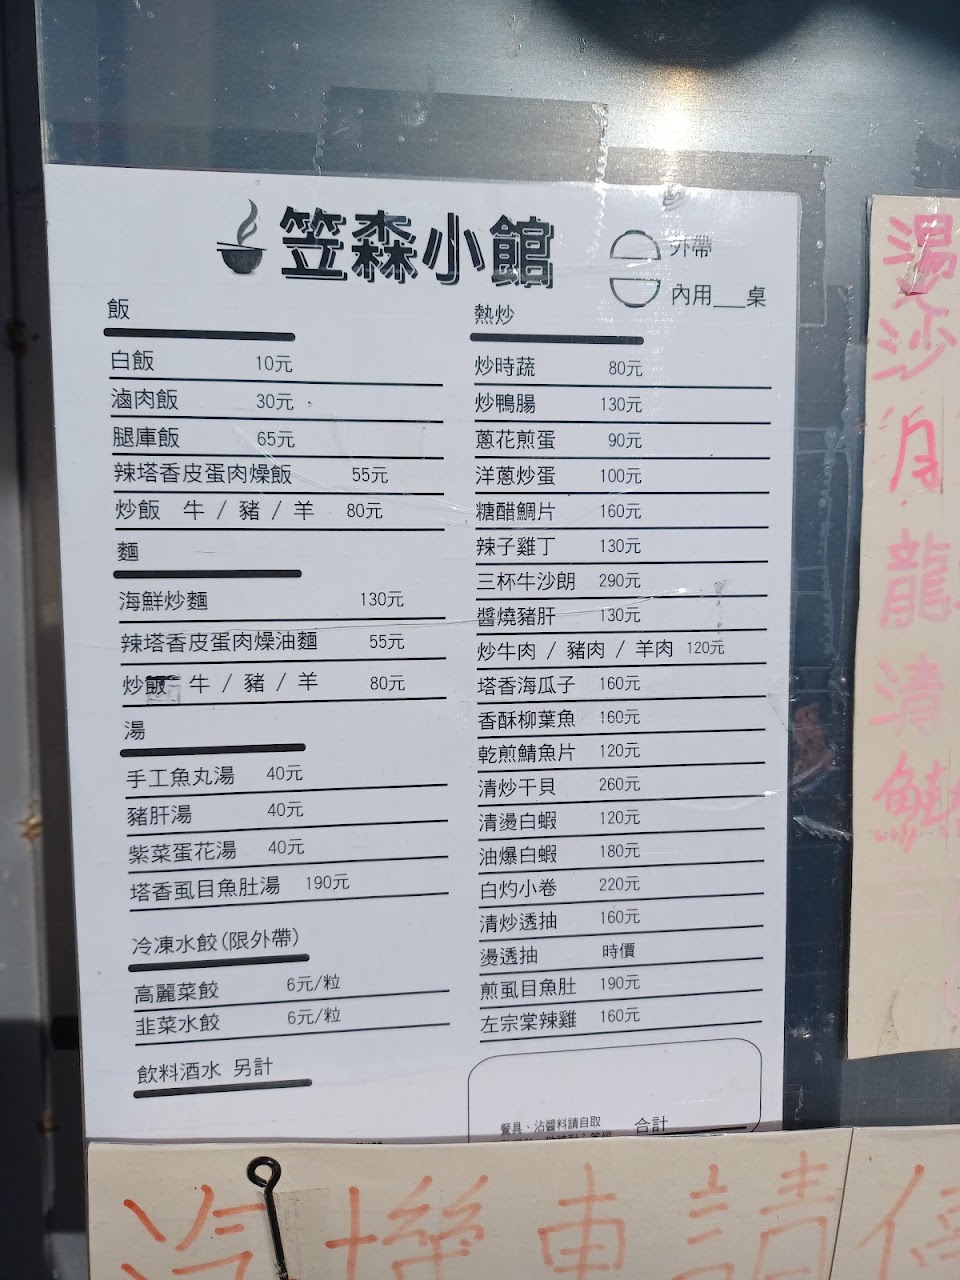 笠森小館
外帶
內用___桌
飯
白飯 10元
滷肉飯 30元
腿庫飯 65元
辣塔香皮蛋肉燥飯 55元
炒飯 牛 / 豬 / 羊 80元
麵
海鮮炒麵 130元
辣塔香皮蛋肉燥油麵 55元
炒飯 牛 / 豬 / 羊 80元
湯
手工魚丸湯 40元
豬肝湯 40元
紫菜蛋花湯 40元
塔香虱目魚肚湯 190元
冷凍水餃(限外帶)
高麗菜餃 6元/粒
韭菜水餃 6元/粒
飲料酒水 另計
熱炒
炒時蔬 80元
炒鴨腸 130元
蔥花煎蛋 90元
洋蔥炒蛋 100元
糖醋鯛片 160元
辣子雞丁 130元
三杯牛沙朗 290元
醬燒豬肝 130元
炒牛肉 / 豬肉 / 羊肉 120元
塔香海瓜子 160元
香酥柳葉魚 160元
乾煎鯖魚片 120元
清炒干貝 260元
清燙白蝦 120元
油爆白蝦 180元
白灼小卷 220元
清炒透抽 160元
燙透抽 時價
煎虱目魚肚 190元
左宗棠辣雞 160元
餐具、沾醬料請自取
合計
汽機車請